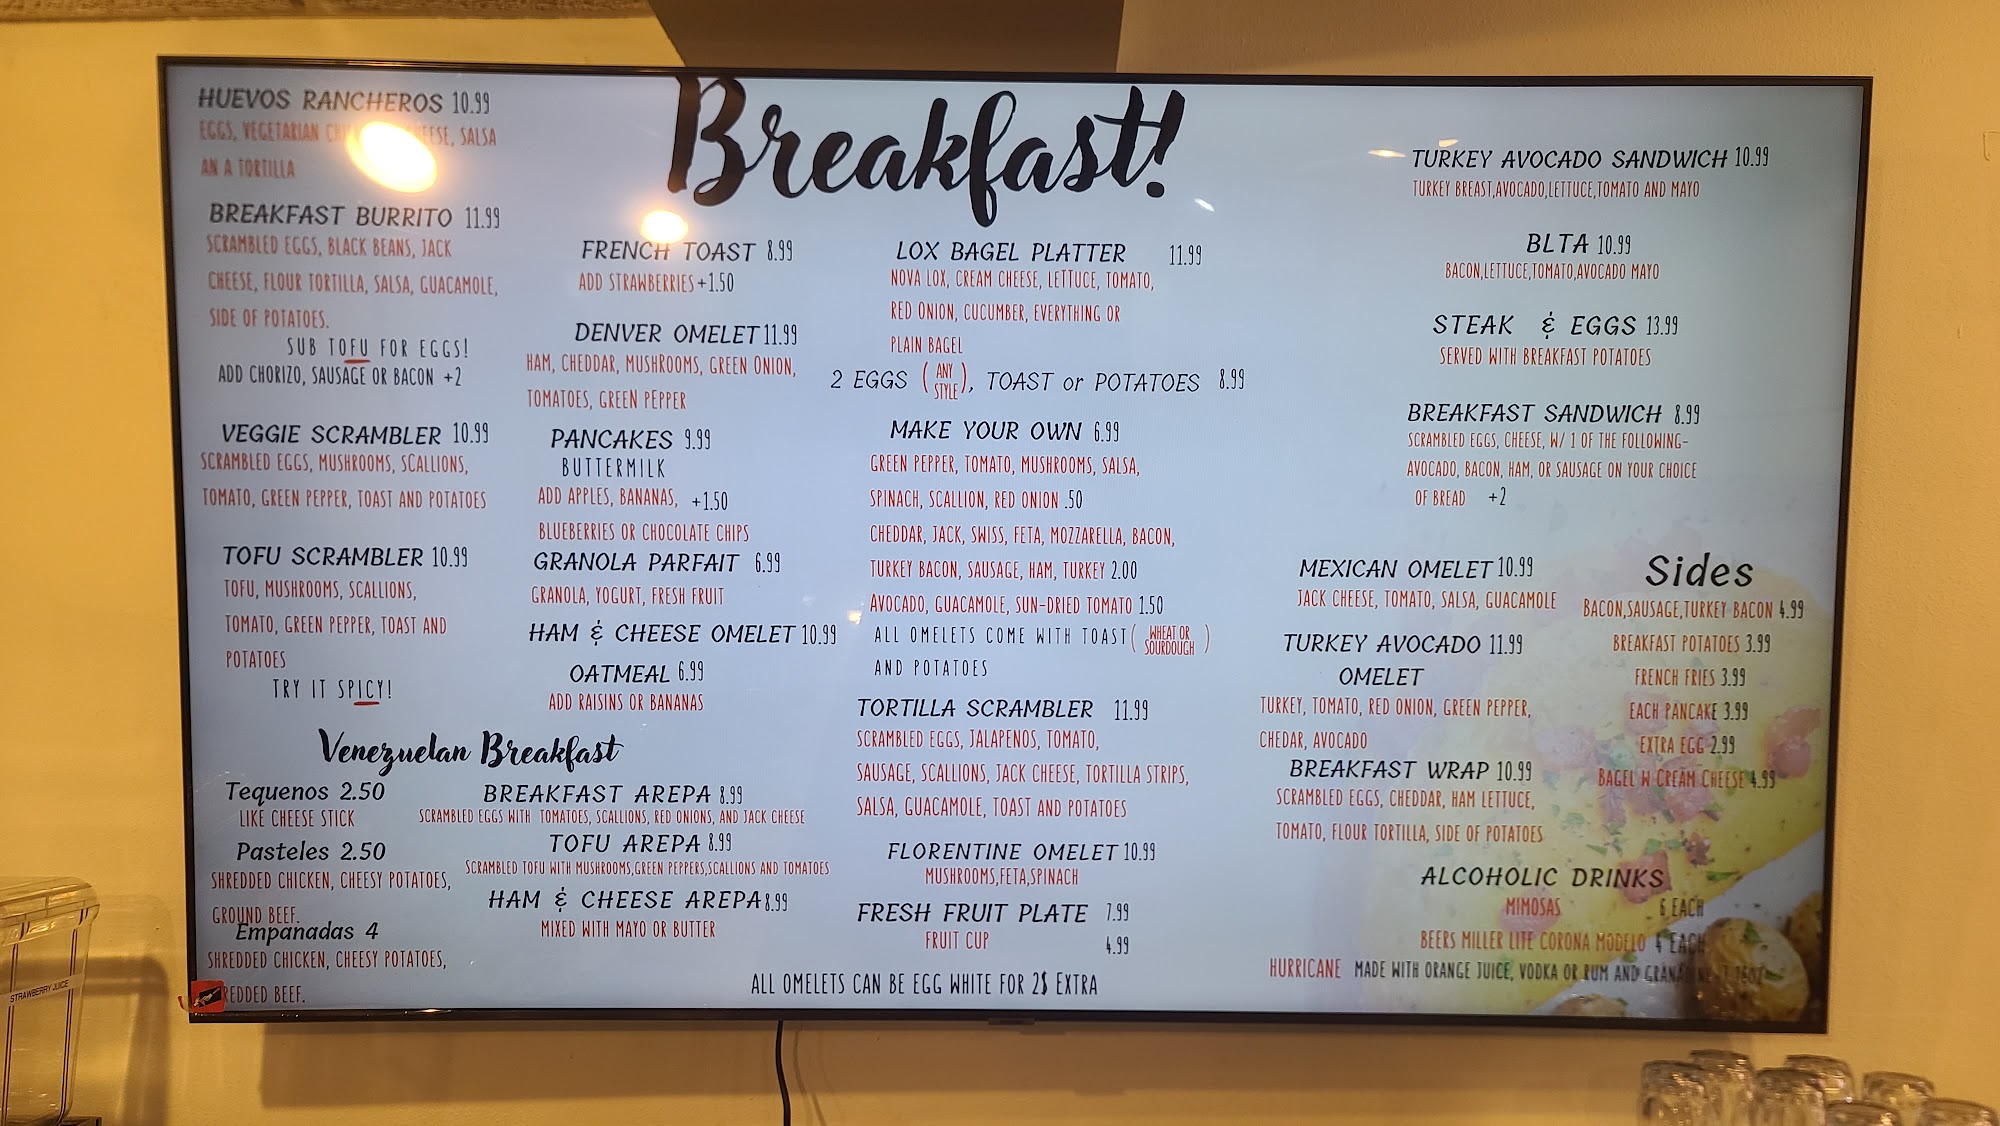 Breakfast!
HUEVOS RANCHEROS 10.99
EGGS, VEGETARIAN CHEESE, SALSA
AN A TORTILLA
BREAKFAST BURRITO 11.99
SCRAMBLED EGGS, BLACK BEANS, JACK
CHEESE, FLOUR TORTILLA, SALSA, GUACAMOLE,
SIDE OF POTATOES.
SUB TOFU FOR EGGS!
ADD CHORIZO, SAUSAGE OR BACON +2
VEGGIE SCRAMBLER 10.99
SCRAMBLED EGGS, MUSHROOMS, SCALLIONS,
TOMATO, GREEN PEPPER, TOAST AND POTATOES
TOFU SCRAMBLER 10.99
TOFU, MUSHROOMS, SCALLIONS,
TOMATO, GREEN PEPPER, TOAST AND
POTATOES
TRY IT SPICY!
FRENCH TOAST 8.99
ADD STRAWBERRIES +1.50
DENVER OMELET 11.99
HAM, CHEDDAR, MUSHROOMS, GREEN ONION,
TOMATOES, GREEN PEPPER
PANCAKES 9.99
BUTTERMILK
ADD APPLES, BANANAS, +1.50
BLUEBERRIES OR CHOCOLATE CHIPS
GRANOLA PARFAIT 6.99
GRANOLA, YOGURT, FRESH FRUIT
HAM & CHEESE OMELET 10.99
OATMEAL 6.99
ADD RAISINS OR BANANAS
Venezuelan Breakfast
Tequenos 2.50
LIKE CHEESE STICK
Pasteles 2.50
SHREDDED CHICKEN, CHEESY POTATOES,
GROUND BEEF.
Empanadas 4
SHREDDED CHICKEN, CHEESY POTATOES,
BEEF.
BREAKFAST AREPA 8.99
SCRAMBLED EGGS WITH TOMATOES, SCALLIONS, RED ONIONS, AND JACK CHEESE
TOFU AREPA 8.99
SCRAMBLED TOFU WITH MUSHROOMS,GREEN PEPPERS,SCALLIONS AND TOMATOES
HAM & CHEESE AREPA 8.99
MIXED WITH MAYO OR BUTTER
LOX BAGEL PLATTER 11.99
NOVA LOX, CREAM CHEESE, LETTUCE, TOMATO,
RED ONION, CUCUMBER, EVERYTHING OR
PLAIN BAGEL
2 EGGS (ANY STYLE), TOAST or POTATOES 8.99
MAKE YOUR OWN 6.99
GREEN PEPPER, TOMATO, MUSHROOMS, SALSA,
SPINACH, SCALLION, RED ONION .50
CHEDDAR, JACK, SWISS, FETA, MOZZARELLA, BACON,
TURKEY BACON, SAUSAGE, HAM, TURKEY 2.00
AVOCADO, GUACAMOLE, SUN-DRIED TOMATO 1.50
ALL OMELETS COME WITH TOAST (WHEAT OR SOURDOUGH)
AND POTATOES
TORTILLA SCRAMBLER 11.99
SCRAMBLED EGGS, JALAPENOS, TOMATO,
SAUSAGE, SCALLIONS, JACK CHEESE, TORTILLA STRIPS,
SALSA, GUACAMOLE, TOAST AND POTATOES
FLORENTINE OMELET 10.99
MUSHROOMS,FETA,SPINACH
FRESH FRUIT PLATE 7.99
FRUIT CUP 4.99
ALL OMELETS CAN BE EGG WHITE FOR 2$ EXTRA
TURKEY AVOCADO SANDWICH 10.99
TURKEY BREAST,AVOCADO,LETTUCE,TOMATO AND MAYO
BLTA 10.99
BACON,LETTUCE,TOMATO,AVOCADO MAYO
STEAK & EGGS 13.99
SERVED WITH BREAKFAST POTATOES
BREAKFAST SANDWICH 8.99
SCRAMBLED EGGS, CHEESE, W/ 1 OF THE FOLLOWING-
AVOCADO, BACON, HAM, OR SAUSAGE ON YOUR CHOICE
OF BREAD +2
MEXICAN OMELET 10.99
JACK CHEESE, TOMATO, SALSA, GUACAMOLE
TURKEY AVOCADO 11.99
OMELET
TURKEY, TOMATO, RED ONION, GREEN PEPPER,
CHEDAR, AVOCADO
BREAKFAST WRAP 10.99
SCRAMBLED EGGS, CHEDDAR, HAM LETTUCE,
TOMATO, FLOUR TORTILLA, SIDE OF POTATOES
Sides
BACON,SAUSAGE,TURKEY BACON 4.99
BREAKFAST POTATOES 3.99
FRENCH FRIES 3.99
EACH PANCAKE 3.99
EXTRA EGG 2.99
BAGEL W CREAM CHEESE 4.99
ALCOHOLIC DRINKS
MIMOSAS 6 EACH
BEERS MILLER LITE CORONA MODELO 4 EACH
HURRICANE MADE WITH ORANGE JUICE, VODKA OR RUM AND
STRAWBERRY JUICE